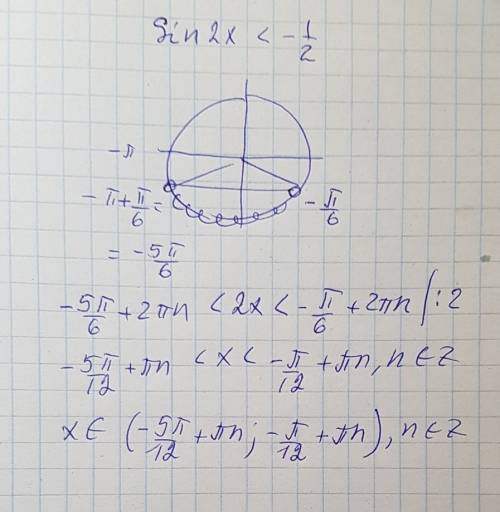 Sin 2x < -1/2
-π
-π + π/6 =
-π/6
= -5π/6
-5π/6 + 2πn < 2x < -π/6 + 2πn /:2
-5π/12 + πn < x < -π/12 + πn, n ∈ Z
x ∈ (-5π/12 + πn; -π/12 + πn), n ∈ Z